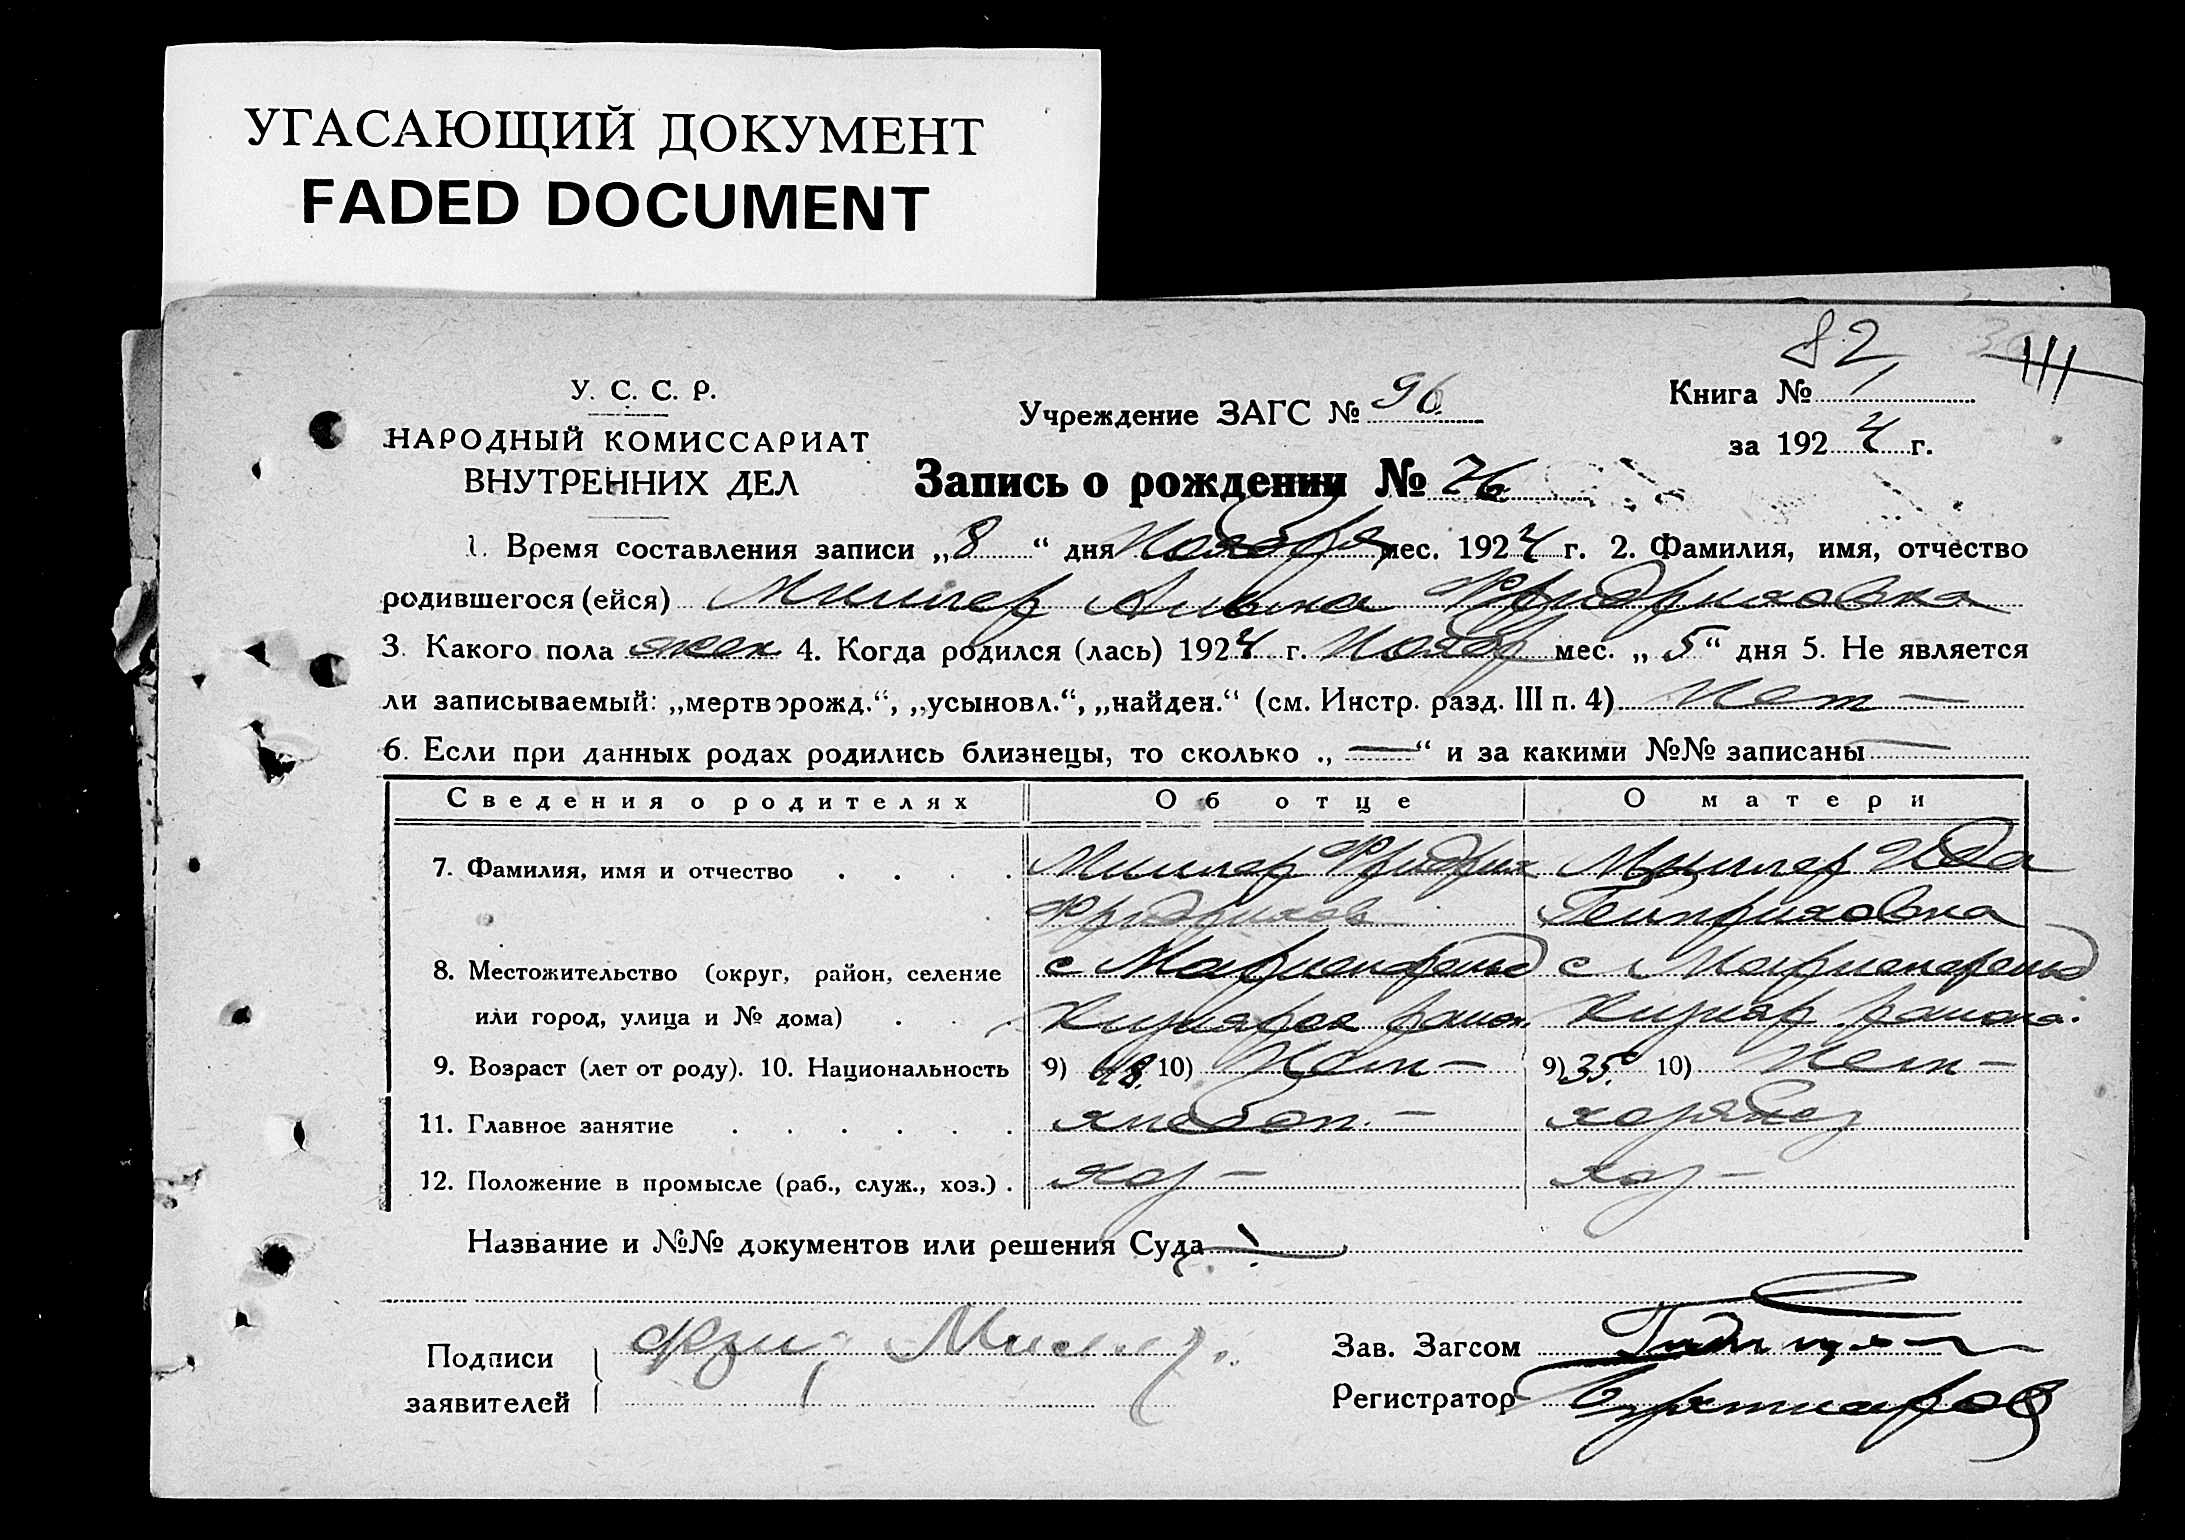 УГАСАЮЩИЙ ДОКУМЕНТ
FADED DOCUMENT
82
У. С. С. Р.
НАРОДНЫЙ КОМИССАРИАТ
ВНУТРЕННИХ ДЕЛ
Учреждение ЗАГС № 96
Книга № 1
за 1924 г.
Запись о рождении № 76
1. Время составления записи „8“ дня Ноября мес. 1924 г. 2. Фамилия, имя, отчество
родившегося (ейся) Миллер Фридриховна
3. Какого пола жен 4. Когда родился (лась) 1924 г. Ноябр мес. „5“ дня 5. Не является
ли записываемый: „мертворожд.“, „усыновл.“, „найден.“ (см. Инстр. разд. III п. 4) Нет —
6. Если при данных родах родились близнецы, то сколько „—“ и за какими №№ записаны —
Сведения о родителях Об отце О матери
7. Фамилия, имя и отчество . . . . Миллер Фридрих Миллер Ида
Фридрихов Генриховна
8. Местожительство (округ, район, селение с Мариенфельд с Мариенфельд
или город, улица и № дома) . . . района.
9. Возраст (лет от роду). 10. Национальность 9) 48 10) Нем — 9) 35. 10) Нем —
11. Главное занятие . . . . . . хлебоп. —
12. Положение в промысле (раб., служ., хоз.) . хоз — хоз —
Название и №№ документов или решения Суда
Подписи
заявителей
Зав. Загсом
Регистратор